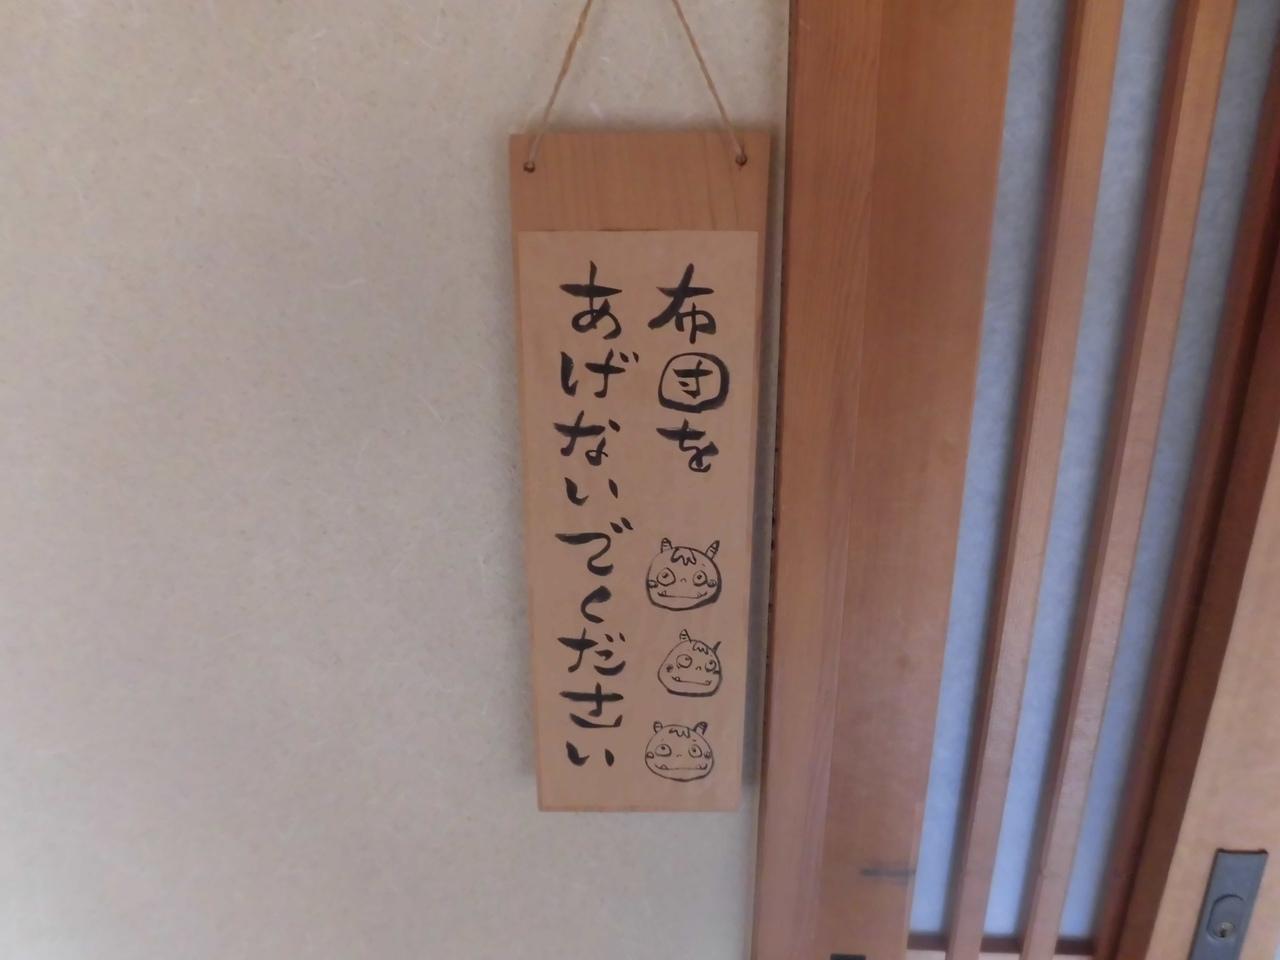 布団を
あげないでください